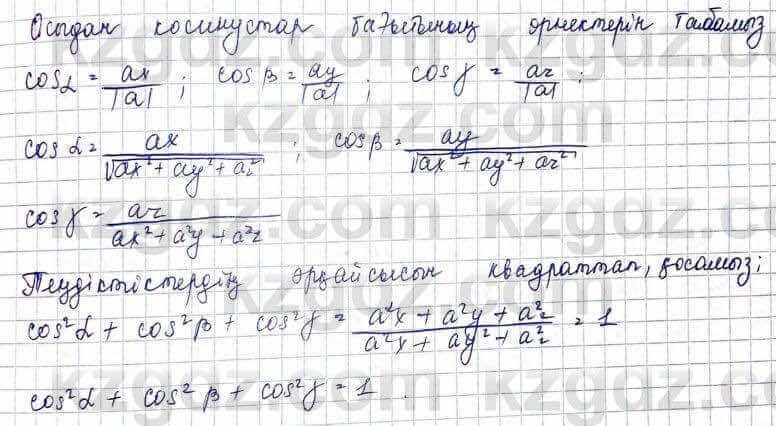 Осыдан косинустар бағытының өрнектерін табамыз
cosα = ax/|a| ; cosβ = ay/|a| ; cosγ = az/|a| ;
cosα = ax/√(ax² + ay² + az²) ; cosβ = ay/√(ax² + ay² + az²)
cosγ = az/(ax² + a²y + a²z)
Теңдіктердің әрқайсысын квадраттап, қосамыз;
cos²α + cos²β + cos²γ = (a²x + a²y + a²z)/(a²x + ay² + a²z) = 1
cos²α + cos²β + cos²γ = 1 .